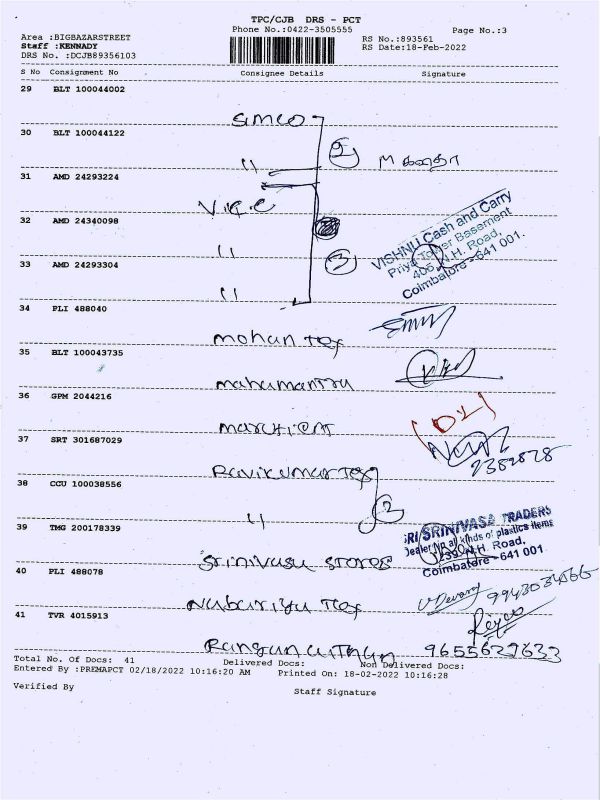 TPC/CJB DRS - PCT
Phone No.:0422-3505555
Page No.:3
Area :BIGBAZARSTREET
RS No.:893561
Staff :KENNADY
RS Date:18-Feb-2022
DRS No. :DCJB89356103
S No Consignment No Consignee Details Signature
29 BLT 100044002
simco
30 BLT 100044122
" 2
31 AMD 24293224
V.K.C
32 AMD 24340098
"
VISHNU Cash and Carry
Priya Tower Basement
405, N.H. Road,
Coimbatore - 641 001.
33 AMD 24293304 3
"
34 PLI 488040
mohan tex
35 BLT 100043735
mahamantra
36 GPM 2044216
37 SRT 301687029
Ravikumar Tex 2382828
38 CCU 100038556
" 2
39 TMG 200178339
SRI SRINIVASA TRADERS
Dealer in all kinds of plastics items
N.H. Road,
Coimbatore - 641 001
Srinivasa stores
40 PLI 488078
Nabariya Tex
41 TVR 4015913
9655629633
Total No. Of Docs: 41 Delivered Docs: Non Delivered Docs:
Entered By :PREMAPCT 02/18/2022 10:16:20 AM Printed On: 18-02-2022 10:16:28
Verified By
Staff Signature